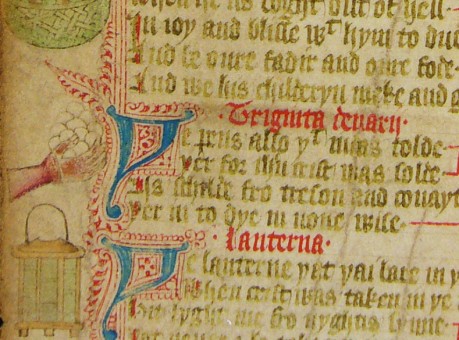 In ioy and blisse wt hym to du
And be oure fadir and oure fode
And we his childeryn meke and g
Triginta denarii
Þe pens also yt was tolde
Yer for ihu crist was solde
Us schilde fro treson and couayt
Yer in to dye in none wise
Lanterna
Þe lanterne yet yai bare in y
When crist was taken in ye
Hit lyght me fro nyghtis synne